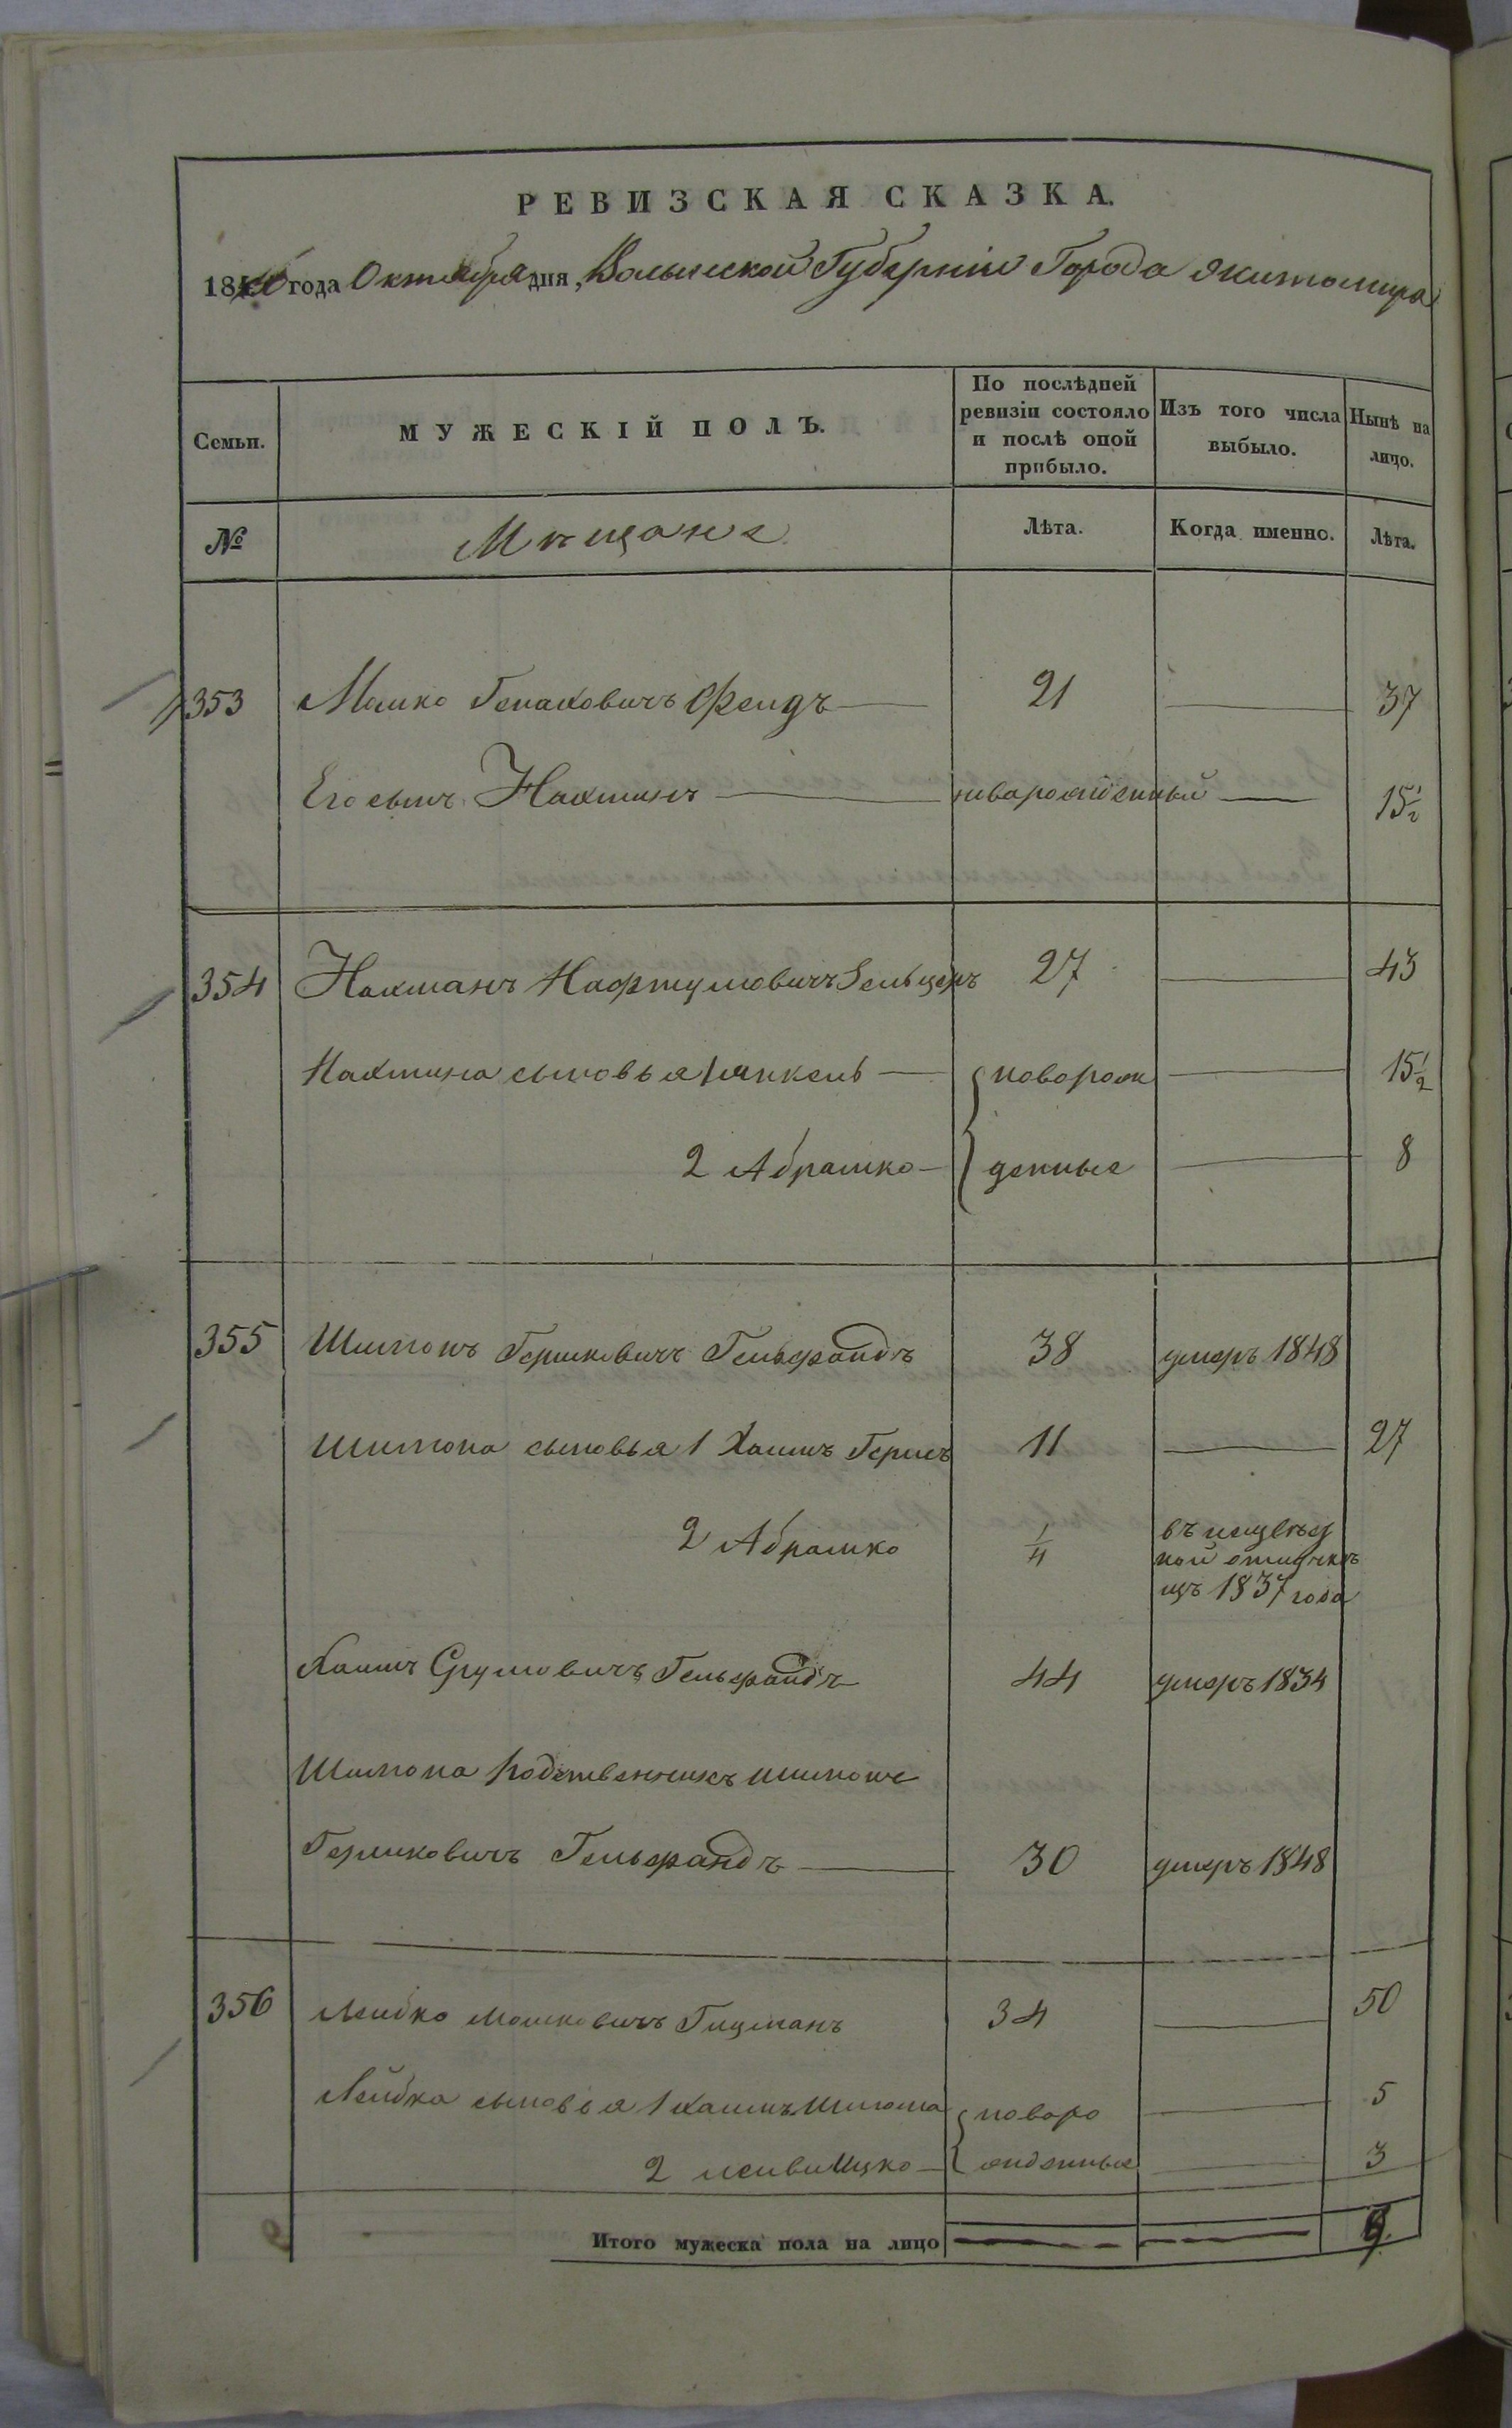 РЕВИЗСКАЯ СКАЗКА.
1850 года Октября дня, Волынской Губерніи Города Житомира
Семьи.
МУЖЕСКІЙ ПОЛЪ.
По послѣдней ревизіи состояло и послѣ оной прибыло.
Изъ того числа выбыло.
Нынѣ на лицо.
№
Мѣщане
Лѣта.
Когда именно.
Лѣта.
353 Мошко Генаховичъ Фендъ 21 37
Его сынъ Нахманъ новорожденный 15 1/2
354 Нахманъ Нафтуловичъ Зельцеръ 27 43
Нахмана сыновья 1 Янкель новорож 15 1/2
2 Абрамко денные 8
355 Шимонъ Гершковичъ Гельфандъ 38 умеръ 1848
Шимона сыновья 1 Хаимъ Гершъ 11 27
2 Абрамко 1/4 въ неизвѣст
ной отлучкѣ
съ 1837 года
Хаимъ Сруловичъ Гельфандъ 44 умеръ 1834
Шимона родственникъ Шимонъ
Гершковичъ Гельфандъ 30 умеръ 1848
356 Лейбко Мошковичъ Гицманъ 34 50
Лейбка сыновья 1 Хаимъ Шлома новоро 5
2 Лейви Ицко жденные 3
Итого мужеска пола на лицо 9.